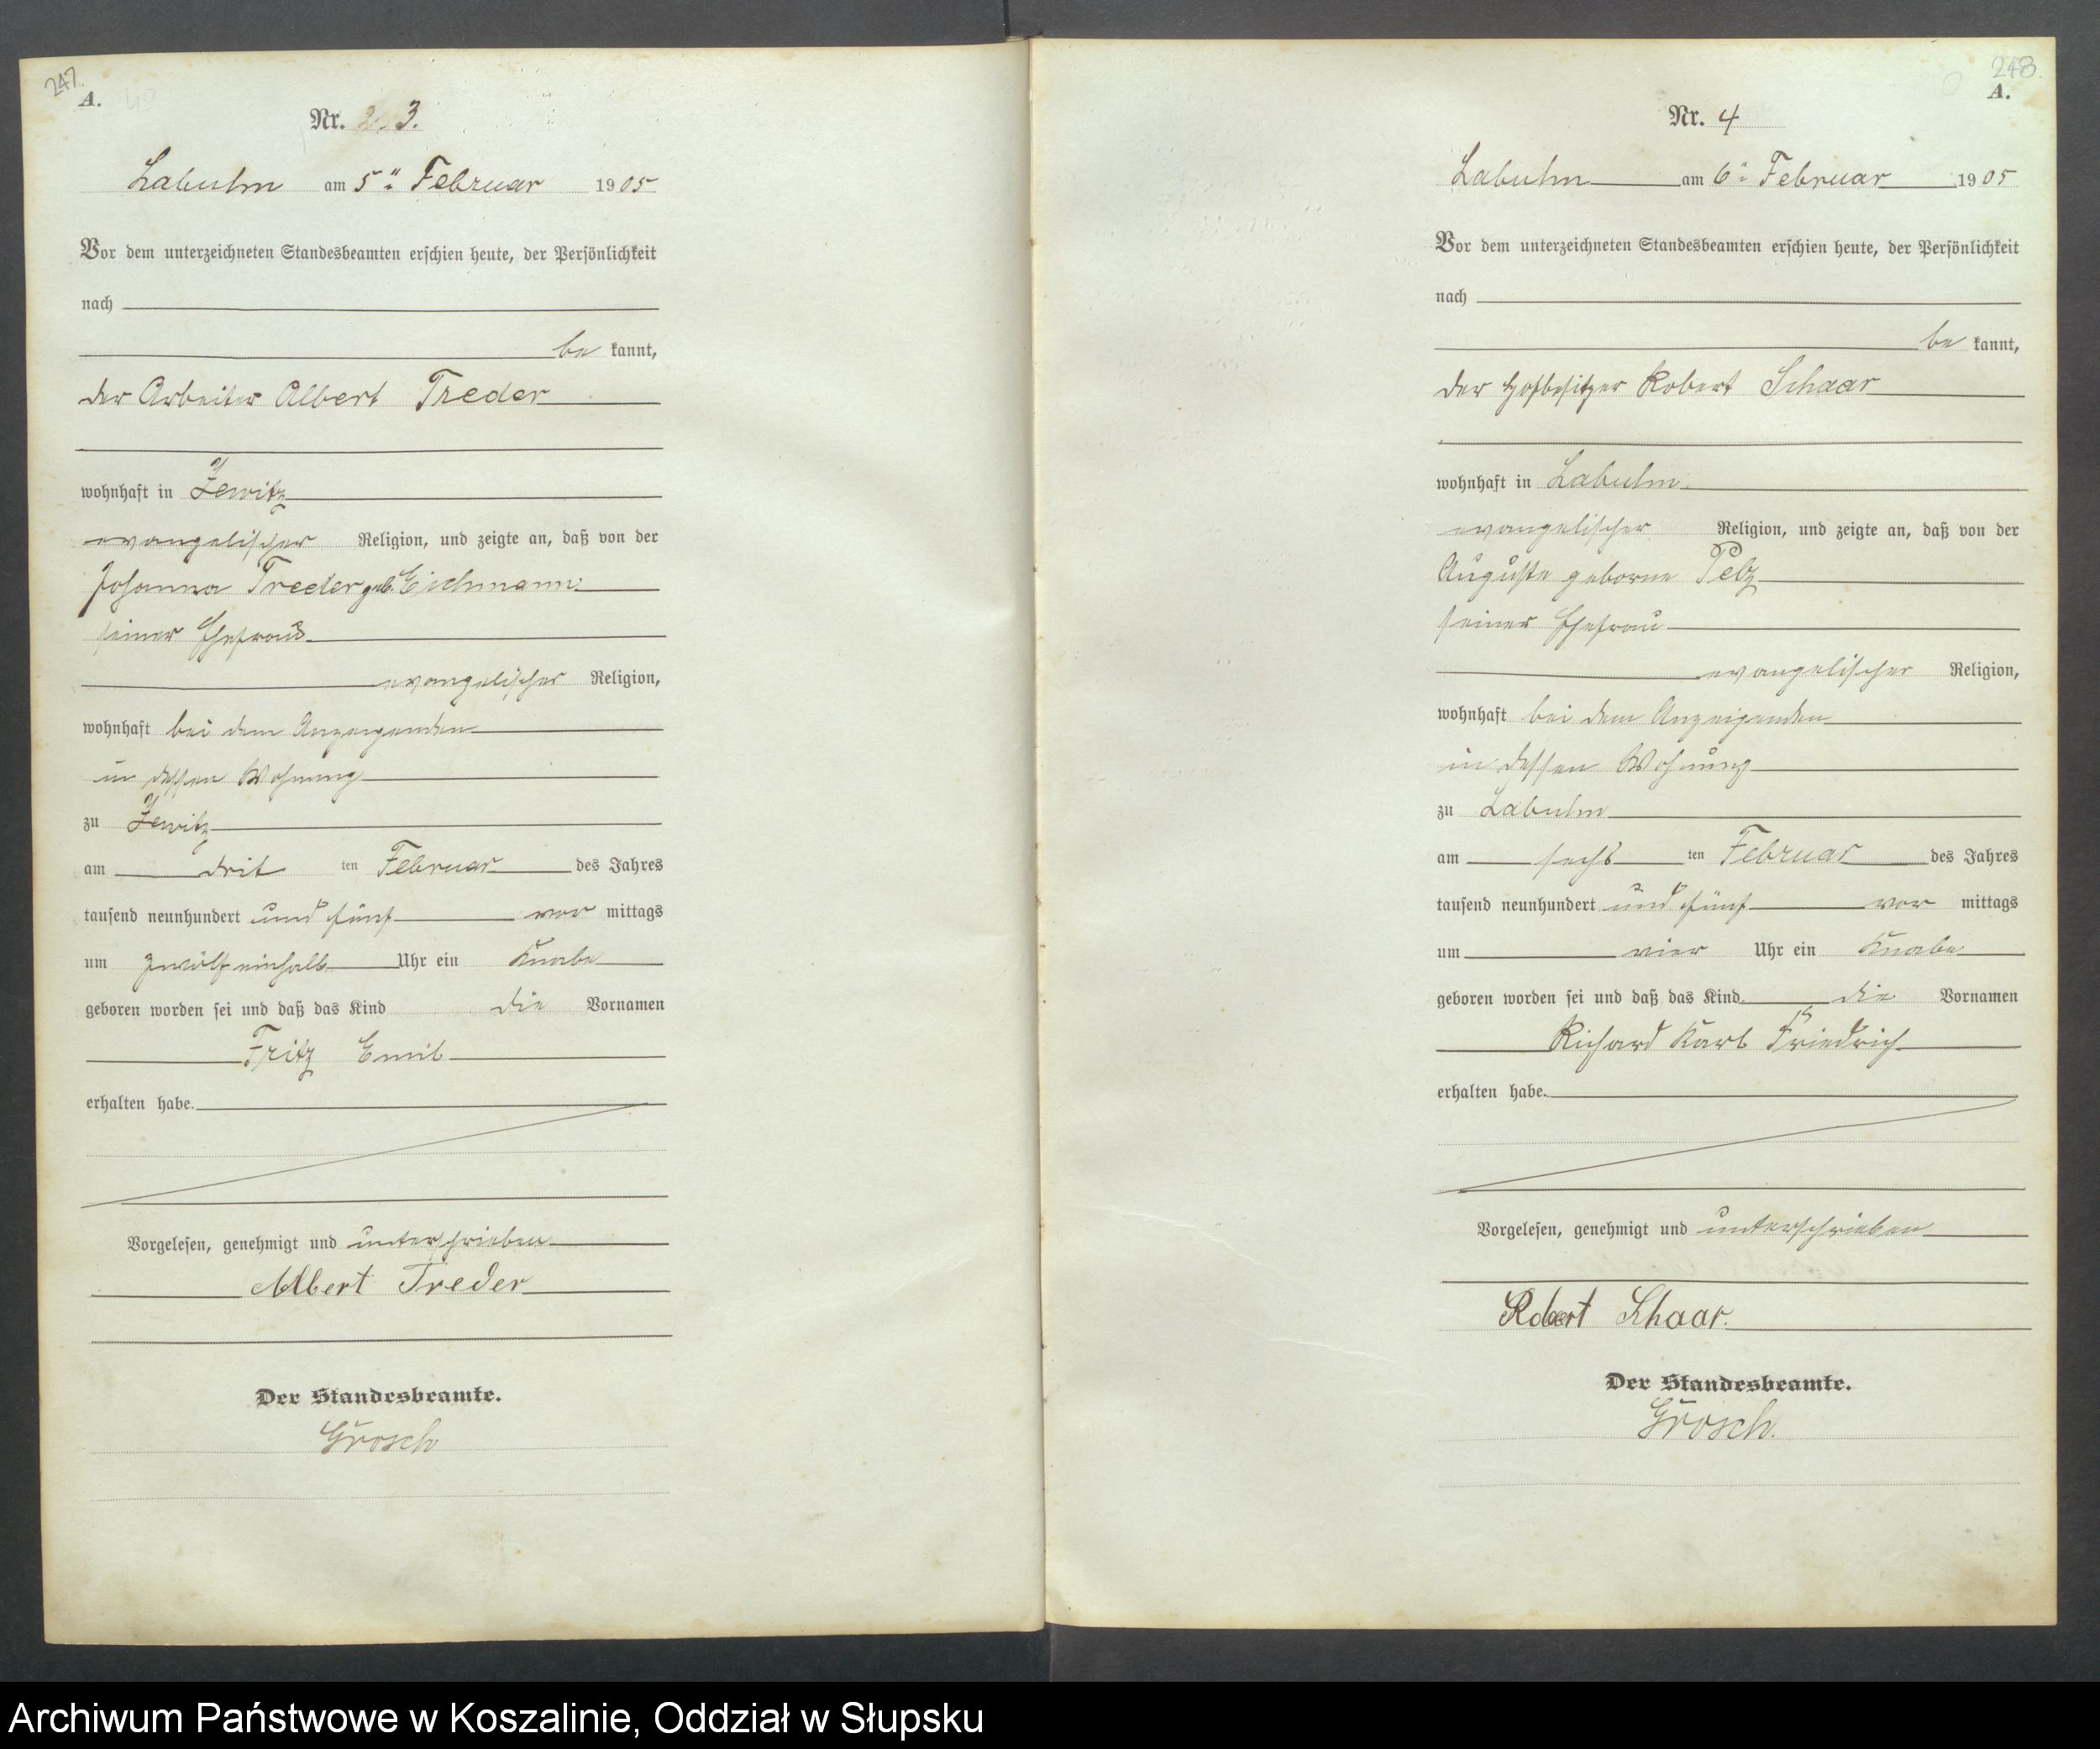 247.
A.
Nr. 3.
Labuhn am 5ten Februar 1905
Vor dem unterzeichneten Standesbeamten erschien heute, der Persönlichkeit
nach
be kannt,
der Arbeiter Albert Treder
wohnhaft in Zewitz
evangelischer Religion, und zeigte an, daß von der
Johanna Treder geb. Eichmann
seiner Ehefrau
evangelischer Religion,
wohnhaft bei dem Anzeigenden
in dessen Wohnung
zu Zewitz
am drit ten Februar des Jahres
tausend neunhundert und fünf vor mittags
um zwölfeinhalb Uhr ein Knabe
geboren worden sei und daß das Kind die Vornamen
Fritz Emil
erhalten habe.
Vorgelesen, genehmigt und unterschrieben
Albert Treder
Der Standesbeamte.
Grosch
248.
A.
Nr. 4
Labuhn am 6ten Februar 1905
Vor dem unterzeichneten Standesbeamten erschien heute, der Persönlichkeit
nach
be kannt,
der Hofbesitzer Robert Schaar
wohnhaft in Labuhn
evangelischer Religion, und zeigte an, daß von der
Auguste geborne Pelz
seiner Ehefrau
evangelischer Religion,
wohnhaft bei dem Anzeigenden
in dessen Wohnung
zu Labuhn
am sechs ten Februar des Jahres
tausend neunhundert und fünf vor mittags
um vier Uhr ein Knabe
geboren worden sei und daß das Kind die Vornamen
Richard Karl Friedrich
erhalten habe.
Vorgelesen, genehmigt und unterschrieben
Robert Schaar.
Der Standesbeamte.
Grosch.
Archiwum Państwowe w Koszalinie, Oddział w Słupsku